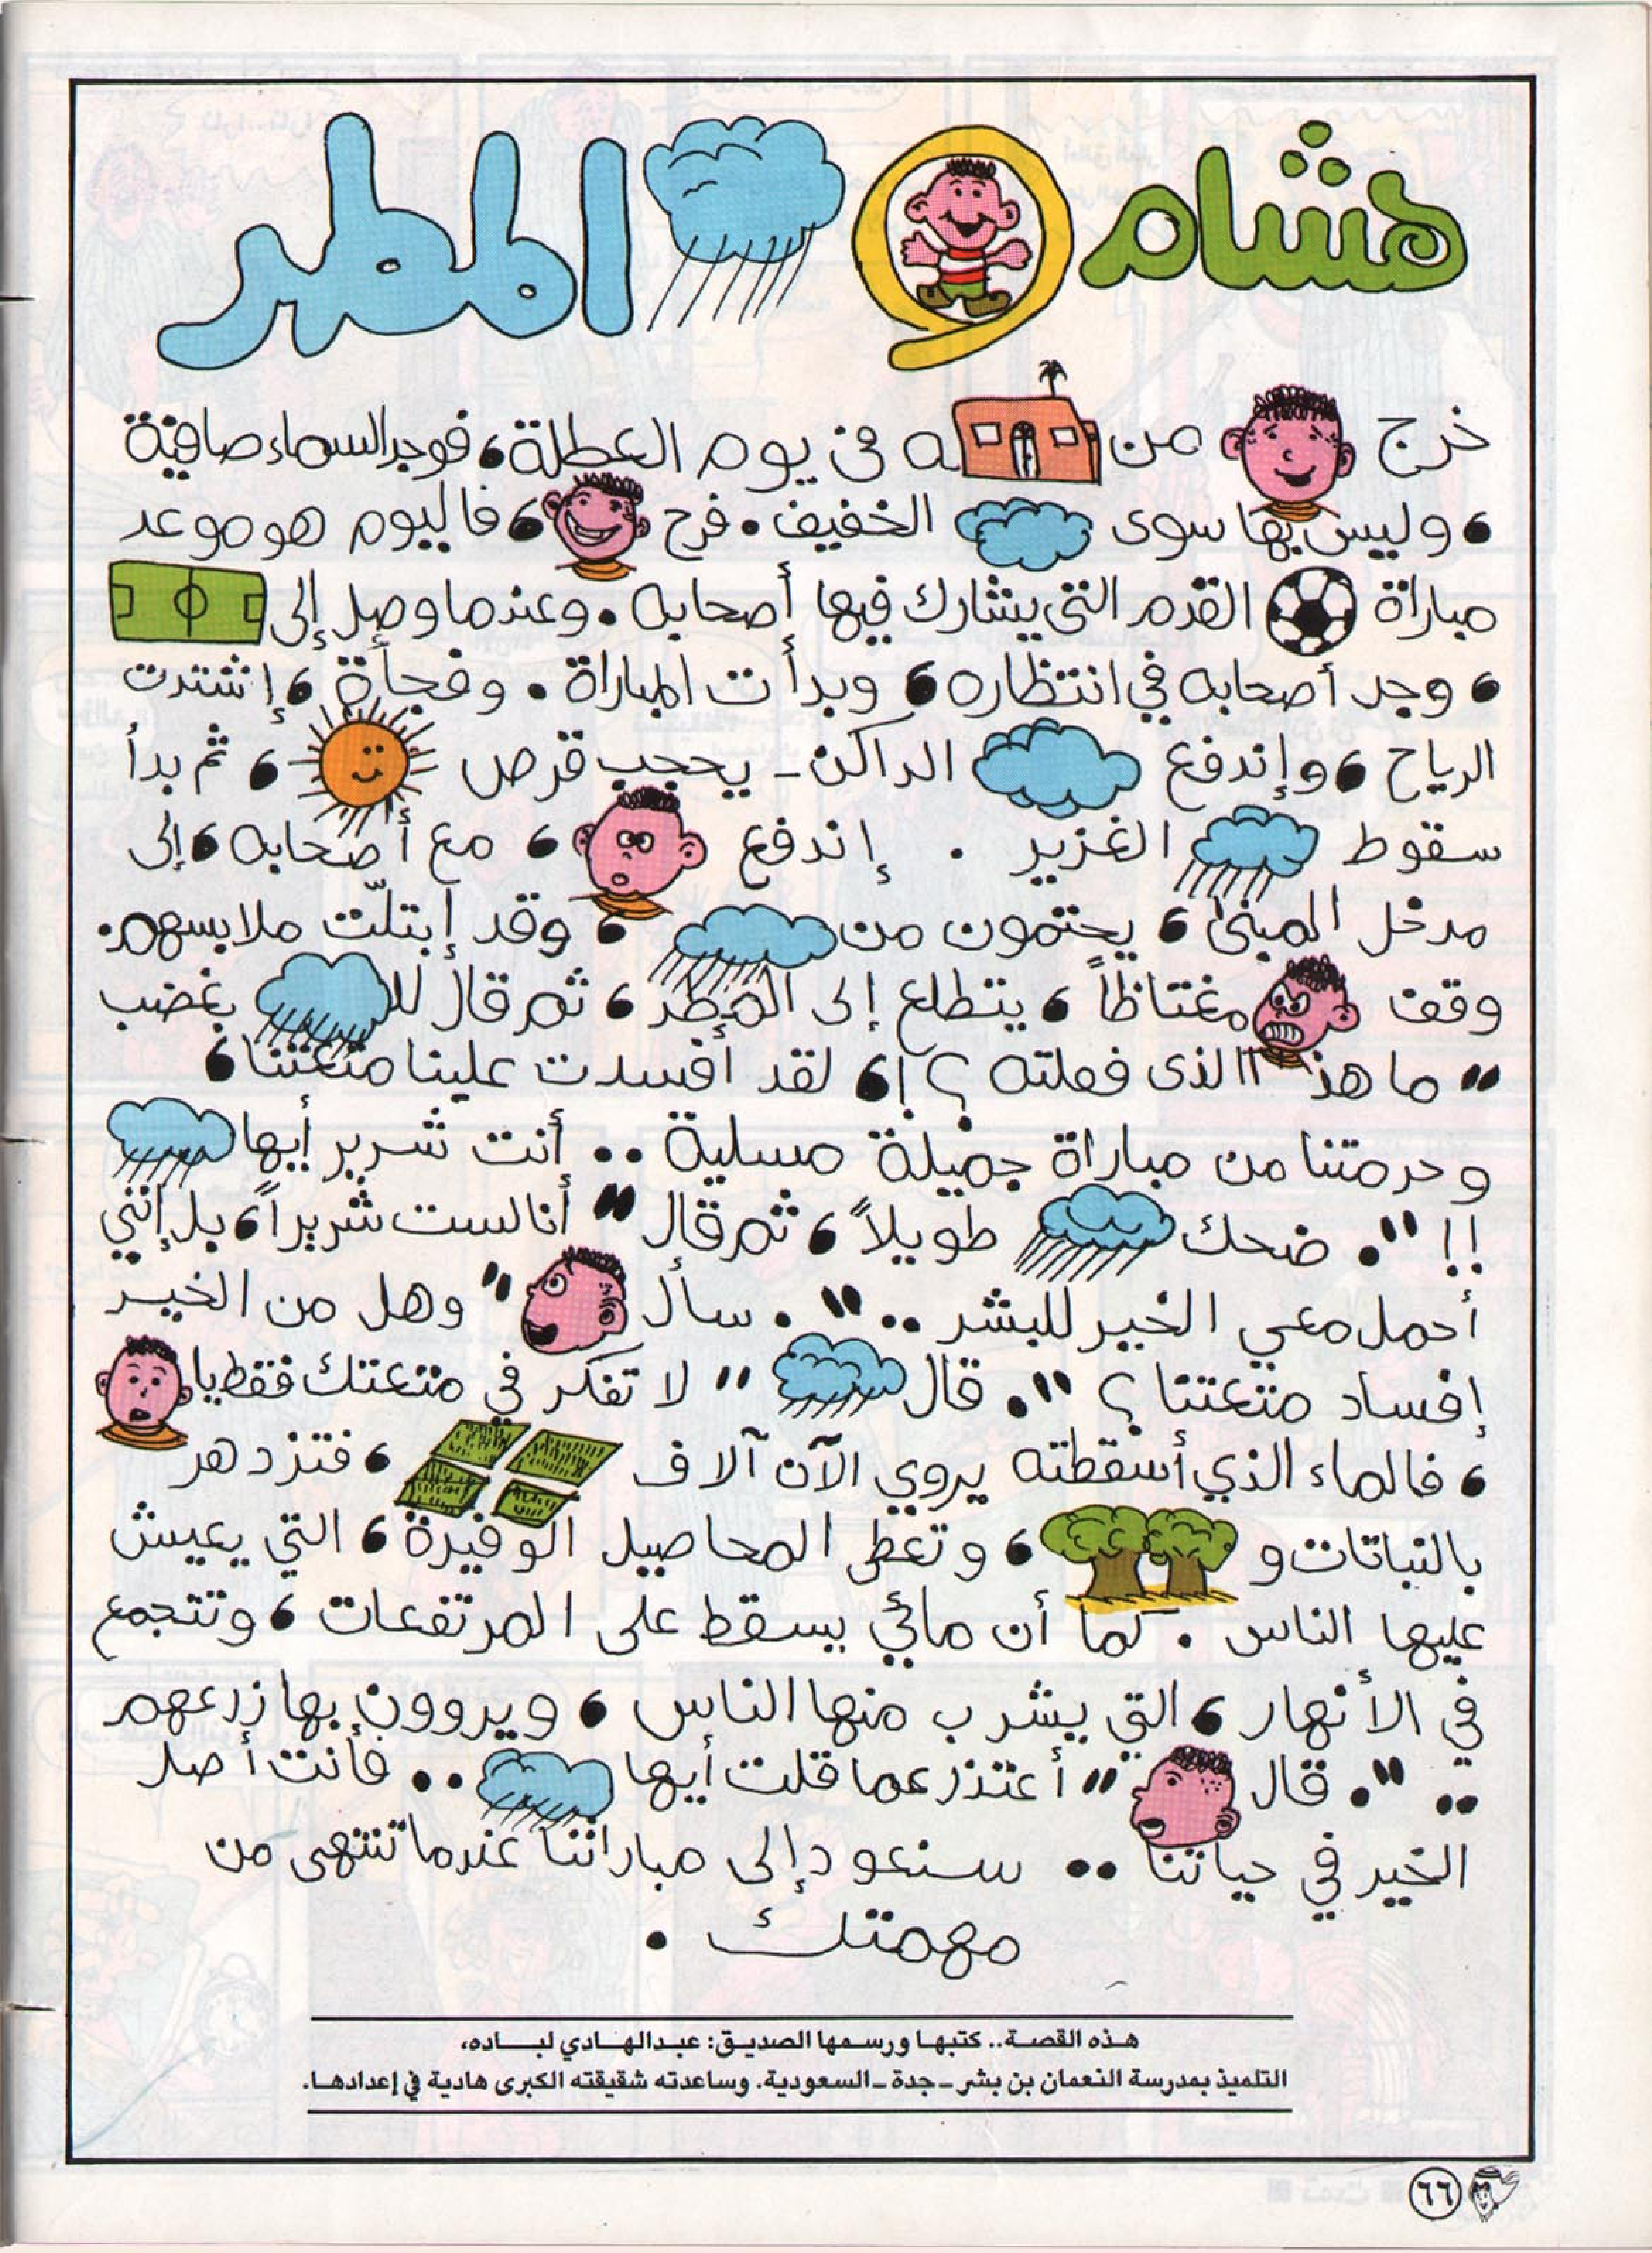 هشام و المطر
خرج من ـه فى يوم العطلة، فوجد السماء صافية
، وليس بها سوى الخفيف. فرح ، فاليوم هو موعد
مباراة القدم التي يشارك فيها أصحابه. وعندما وصل إلى
، وجد أصحابه في انتظاره، وبدأت المباراة. وفجأة، إشتدت
الرياح، وإندفع الداكن - يحجب قرص ، ثم بدأ
سقوط الغزير . إندفع ، مع أصحابه، إلى
مدخل المبنى، يحتمون من ، وقد إبتلّت ملابسهم.
وقف مغتاظاً، يتطلع إلى المطر، ثم قال للـ بغضب
" ما هذا الذى فعلته؟!، لقد أفسدت علينا متعتنا،
وحرمتنا من مباراة جميلة مسلية .. أنت شرير أيها
!! ". ضحك طويلاً، ثم قال " أنا لست شريراً، بل إنني
أحمل معي الخير للبشر .. ". سأل " وهل من الخير
إفساد متعتنا؟ ". قال " لا تفكر في متعتك فقط يا
، فالماء الذي أسقطته يروي الآن آلاف ، فتزدهر
بالنباتات و ، وتعطى المحاصيل الوفيرة، التي يعيش
عليها الناس . كما أن مائي يسقط على المرتفعات، وتتجمع
في الأنهار، التي يشرب منها الناس، ويروون بها زرعهم
.. ". قال " أعتذر عما قلت أيها .. فأنت أصل
الخير في حياتنا .. سنعود إلى مباراتنا عندما تنتهى من
مهمتك .
هذه القصة.. كتبها ورسمها الصديق: عبدالهادي لباده،
التلميذ بمدرسة النعمان بن بشر - جدة - السعودية. وساعدته شقيقته الكبرى هادية في إعدادها.
٦٦